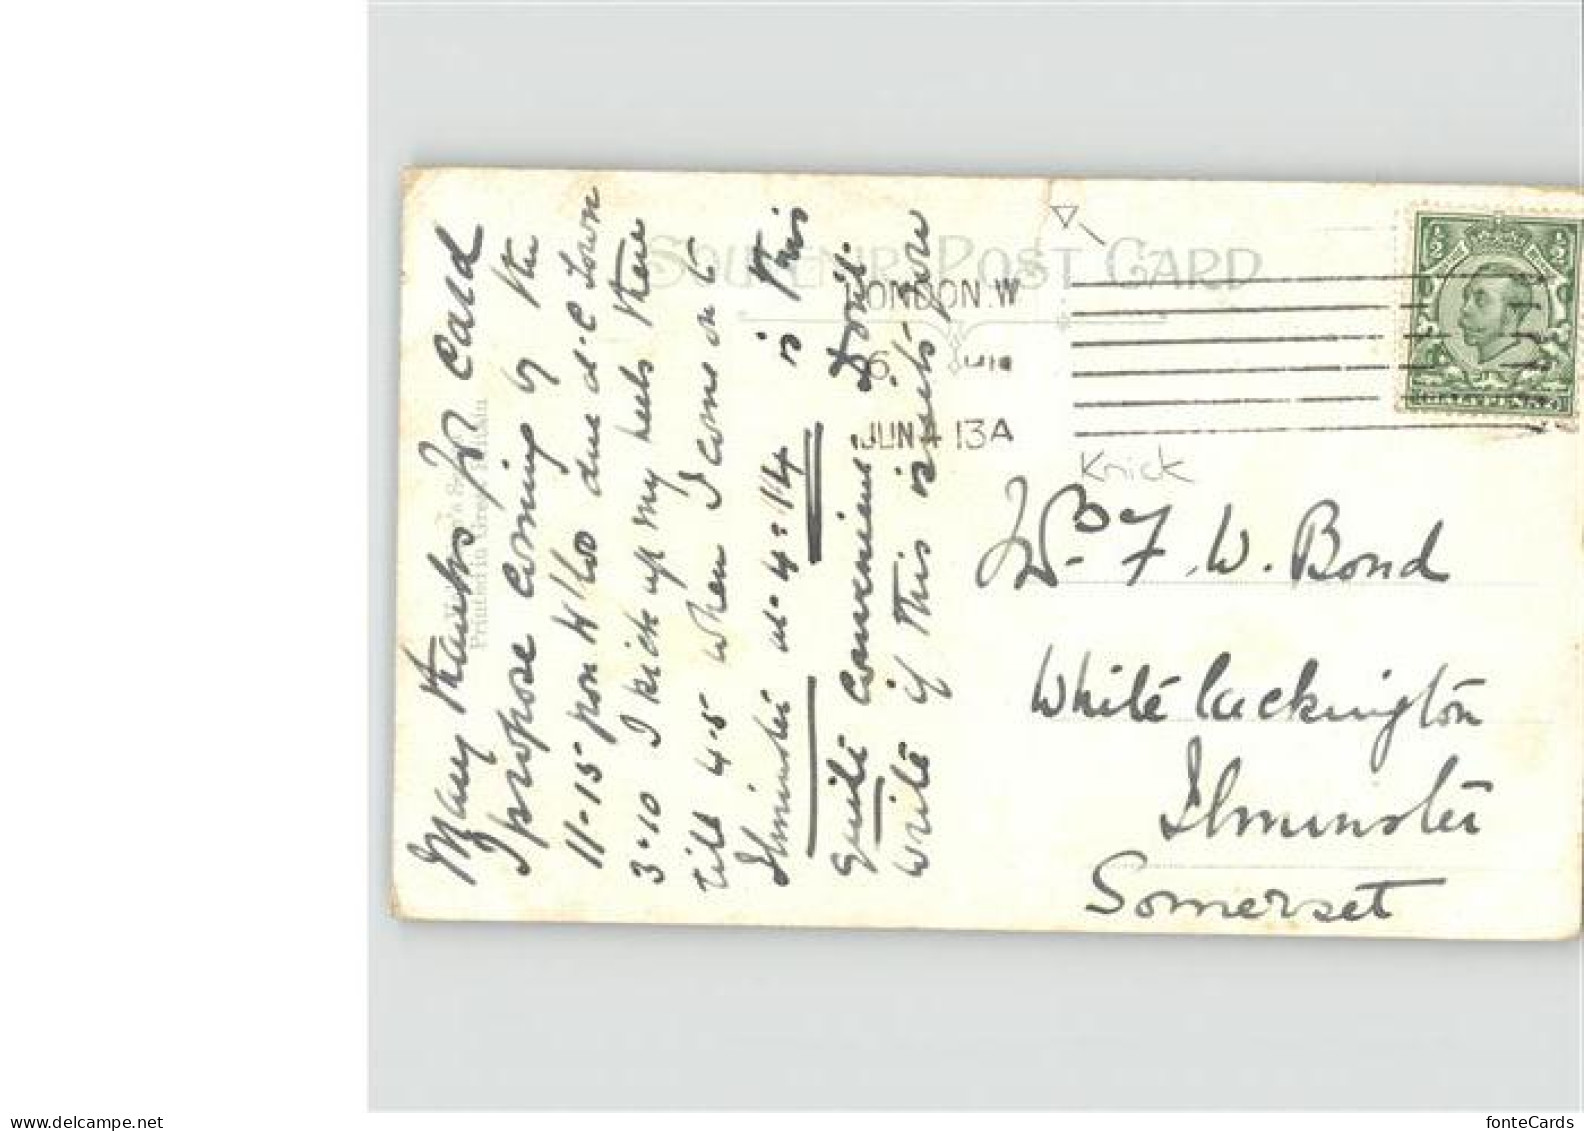 Many thanks for card
I propose coming by the
11-15 from W'loo due at C Town
3.10 I kick up my heels there
till 4.5 when I come on to
Ilminster at 4:14 is this
quite convenient Don't
write if this is its fore
SOUVENIR POST CARD
LONDON.W
6.
JUN 4 13A
Printed in Great Britain
Knick
F. W. Bond
White Lackington
Ilminster
Somerset
delcampe.net
fonteCards